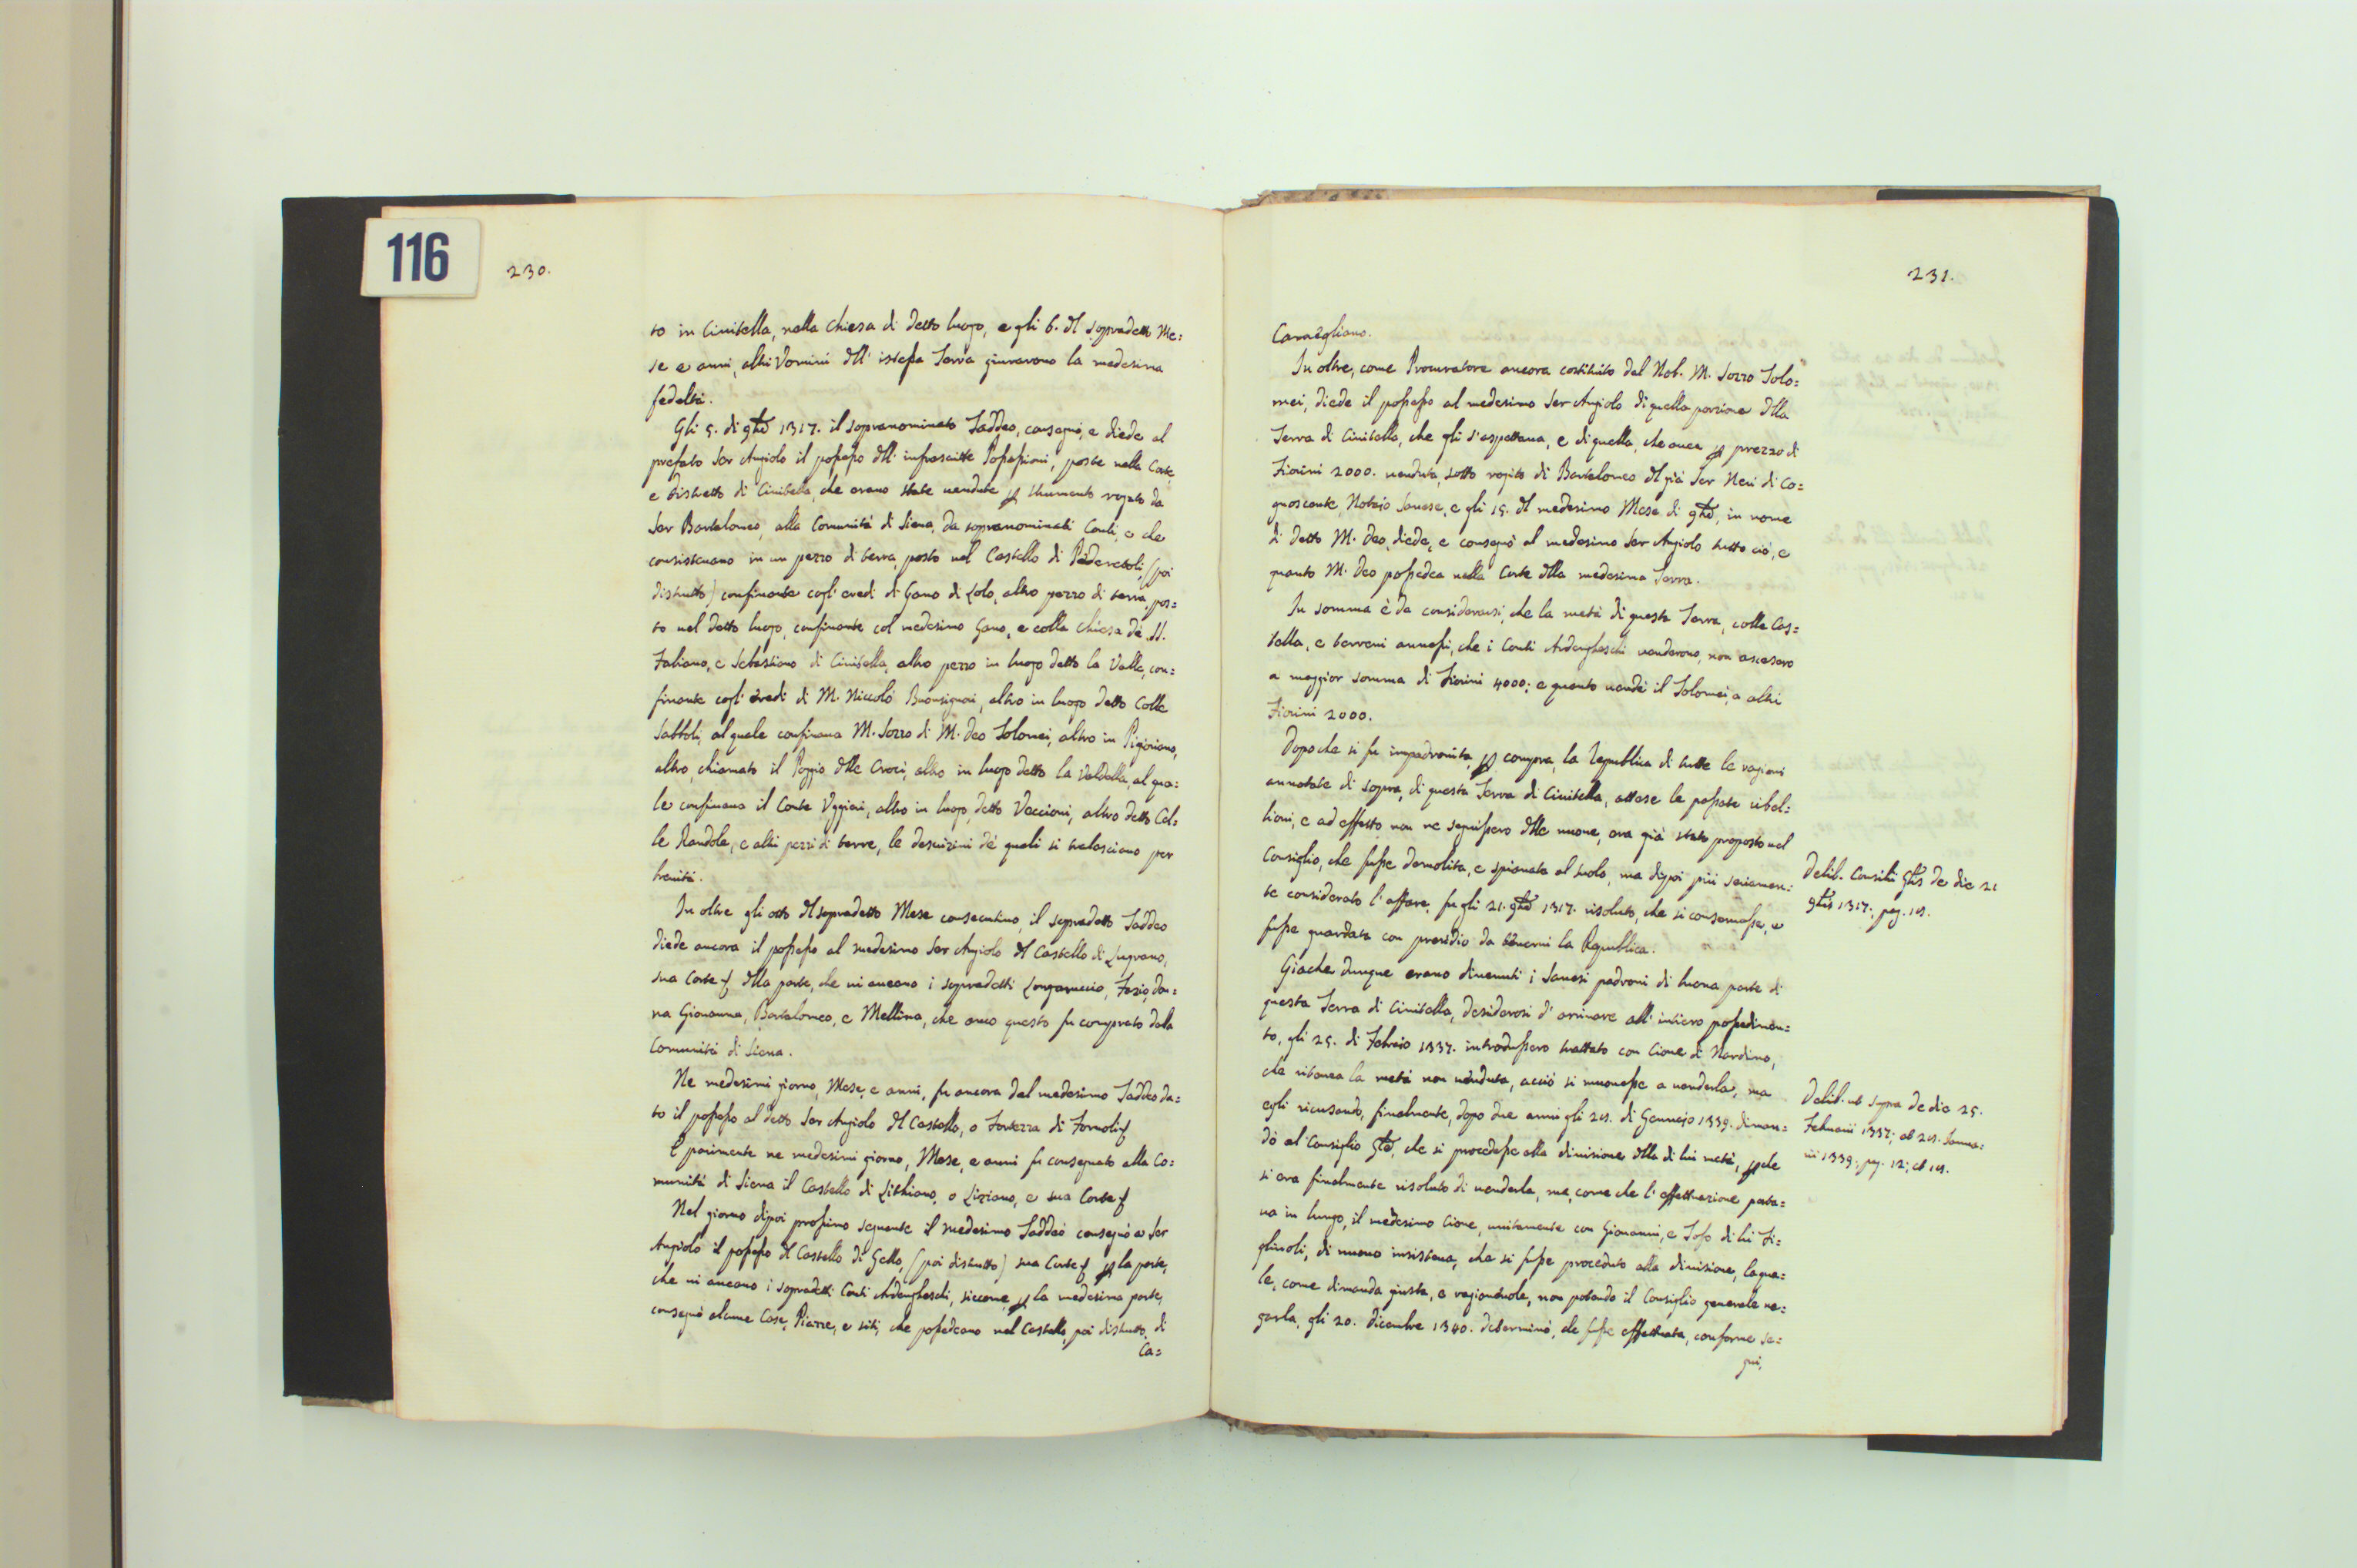 116
230.
to in Civitella, nella Chiesa di detto luogo, e gli 6. dl sopradetto Me=
se e anni, altri Vomini dll' istessa Terra giurarono la medesima
fedeltà.
Gli 5. di 9bre 1317. il sopranominato Taddeo, consegnò, e diede al
prefato Ser Angiolo il possesso dll' infrascritte Possessioni, poste nella Corte,
e distretto di Civitella, che erano state vendute p strumento rogato da
Ser Bartolomeo, alla Comunità di Siena, da sopranominati Conti, e che
consistevano in un pezzo di terra, posto nel Castello di (poi
distrutto) confinante cogl' eredi di Gano di Lolo, altro pezzo di terra, pos=
to nel detto luogo, confinante col medesimo Gano, e colla Chiesa de' SS.
Fabiano, e Sebastiano di Civitella, altro pezzo in luogo detto la Valle, con=
finante cogl' eredi di M. Niccolò Buonsignori, altro in luogo detto Colle
Sabboli, al quale confinava M. Sozzo di M. Deo Tolomei, altro in Pigiriano,
altro, chiamato il Poggio dlle Croci, altro in luogo detto la Valdella, al qua=
le confinava il Conte Uggieri, altro in luogo detto Veccioni, altro detto Col=
le Randole, e altri pezzi di terre, le descrizioni de' quali si tralasciano per
brevità.
In oltre gli otto dl sopradetto Mese consecutivo, il sopradetto Taddeo
diede ancora il possesso al medesimo Ser Angiolo dl Castello di Lugrano,
sua Corte dlla parte, che vi aveano i sopradetti Longaruccio, Fazio, Don=
na Giovanna, Bartolomeo, e Mellina, che anco questo fu comprato dala
Comunità di Siena.
Ne medesimi giorno, Mese, e anni, fu ancora dal medesimo Taddeo da=
to il possesso al detto Ser Angiolo dl Castello, o Fortezza di Fornoli
E parimente ne medesimi giorno, Mese, e anni fu consegnato alla Co=
munità di Siena il Castello di Lithiano, o Liziano, e sua Corte
Nel giorno dipoi prossimo seguente il medesimo Taddeo consegnò a Ser
Angiolo il possesso dl Castello di Gello, (poi distrutto) sua Corte p la parte,
che vi aveano i sopradetti Conti Ardengheschi, siccome p la medesima parte,
consegnò alcune Case, Piazze, e siti, che possedeano nel Castello, poi distrutto, di
Ca=
231.
Camigliano.
In oltre, come Procuratore ancora costituito dal Nob. M. Sozzo Tolo=
mei, diede il possesso al medesimo Ser Angiolo di quella porzione dlla
Terra di Civitella, che gli s'aspettava, e di quella, che avea p prezzo di
Fiorini 2000. venduta, sotto rogito di Bartolomeo dl già Ser Neri di Co=
gnoscente, Notaio Sanese, e gli 15. dl medesimo Mese di 9bre, in nome
di detto M. Deo, diede, e consegnò al medesimo Ser Angiolo tutto ciò, e
quanto M. Deo possedea nella Corte dlla medesima Terra.
In somma è da considerarsi, che la metà di questa Terra, colle Cas=
tella, e terreni annessi, che i Conti Ardengheschi venderono, non ascesero
a maggior somma di Fiorini 4000; e quanto vendè il Tolomei, a altri
Fiorini 2000.
Dopo che si fu impadronita, p compra, la Republica di tutte le ragioni
annotate di sopra, di questa Terra di Civitella, attese le passate ribel=
lioni, e ad effetto non ne seguissero dlle nuove, era già stato proposto nel
Consiglio, che fusse demolita, e spianata al suolo, ma dipoi più seriamen=
te considerato l'affare, fu gli 21. 9bre 1317. risoluto, che si conservasse, e
fusse guardata con presidio da tenervi la Republica.
Giache dunque erano divenuti i Sanesi padroni di buona parte di
questa Terra di Civitella, desiderosi d' arrivare all' intiero possedimen=
to, gli 25. di Febraio 1337. introdussero trattato con Cione di Nardino,
che ritenea la metà non venduta, acciò si movesse a venderla, ma
egli ricusando, finalmente, dopo due anni gli 28. di Gennajo 1339. diman=
dò al Consiglio Gnle, che si procedesse alla divisione dlla di lui metà, p che
si era finalmente risoluto di venderla, ma, come che l' effettuazione porta=
va in lungo, il medesimo Cione, unitamente con Giovanni, e Toso di lui Fi=
glivoli, di nuovo insisteva, che si fusse proceduto alla divisione, la qua=
le, come dimanda giusta, e ragionevole, non potendo il Consiglio generale ne=
garla, gli 20. Dicembre 1340. determinò, che fusse effettuata, conforme se=
guì,
Delib. Consilii Gnlis de die 21
9bris 1317. pag. 18.
Delib. ut supra de die 25.
Februarii 1337; et 28. Janua=
rii 1339; pag. 12; et 18.